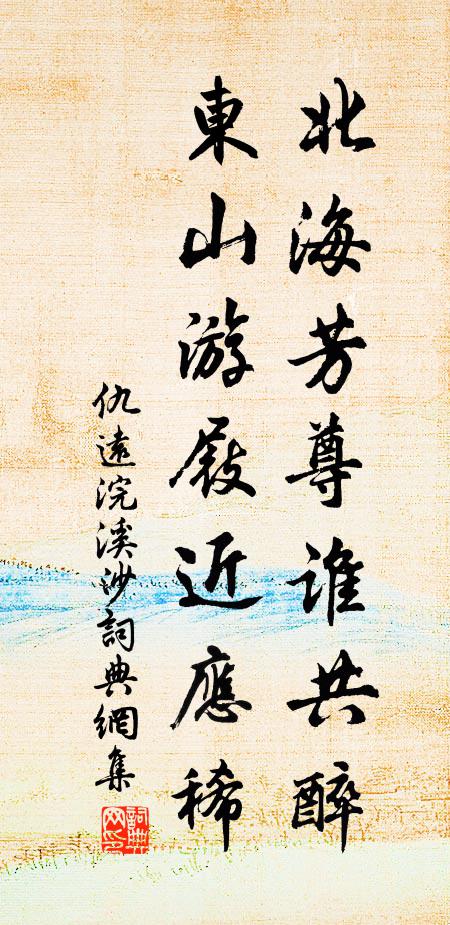 北海芳尊誰共醉
東山游屐近應稀
仇遠浣溪沙詞典網集